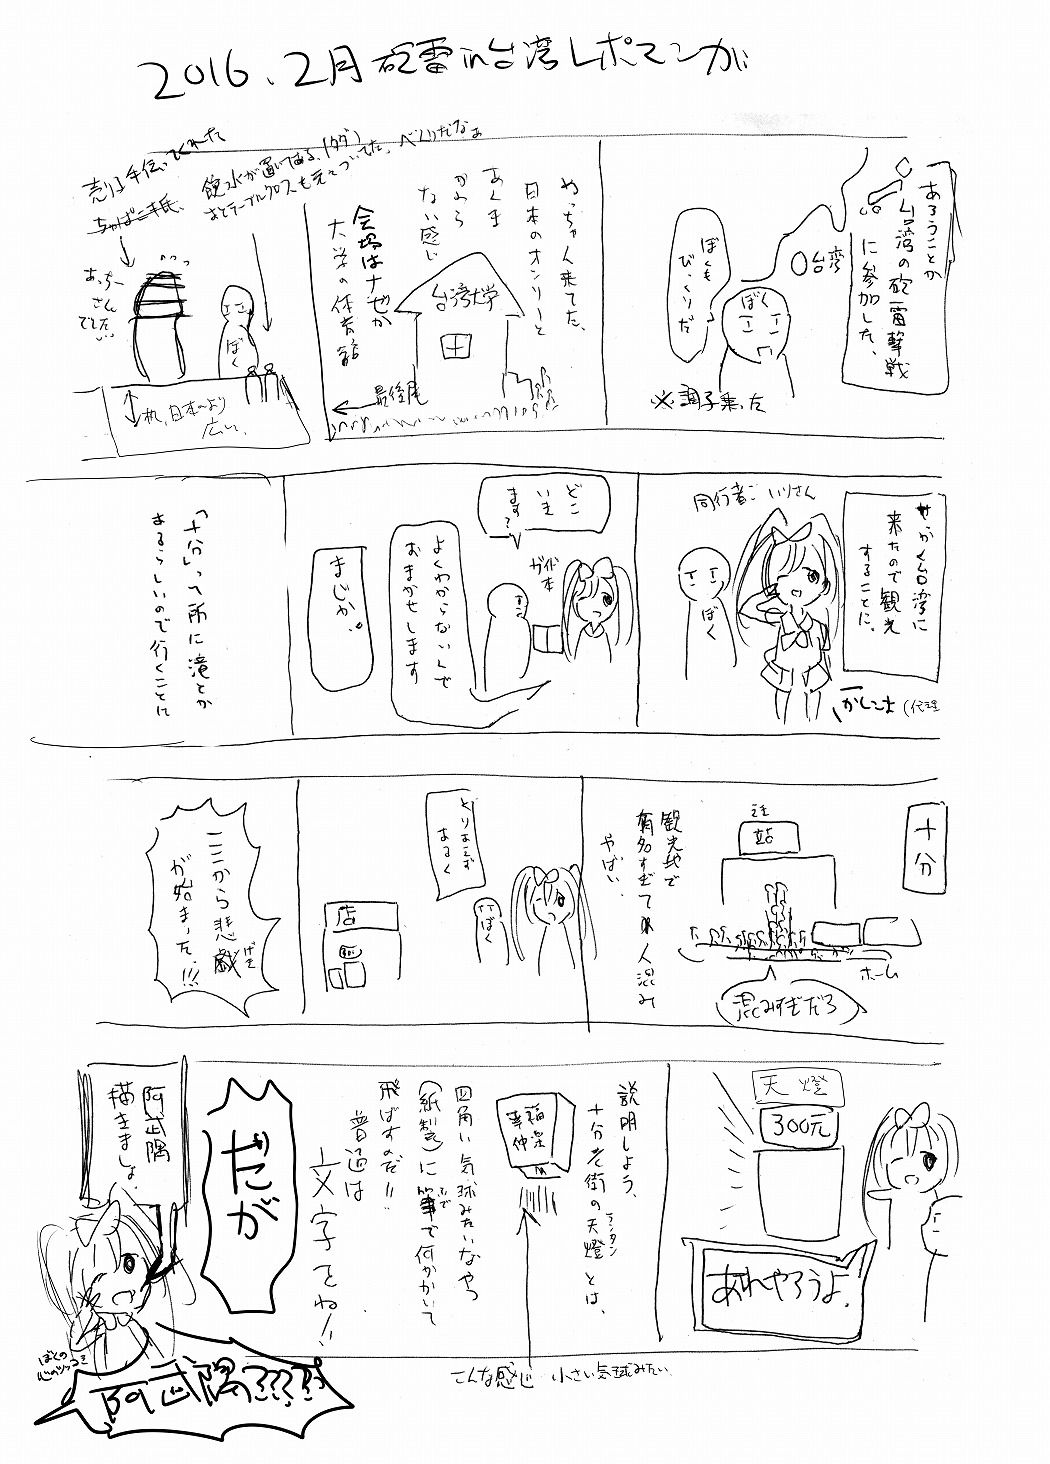 2016.2月 砲雷in台湾レポマンガ
あろうことか
台湾の砲雷撃戦
に参加した、
台湾
ぼくも
びっくりだ
ぼく
※調子乗った
やっちゃん来てた、
日本のオンリーと
あんま
かわら
ない感じ
台湾大学
会場はナゼか
大学の体育館
最後尾
売り子手伝ってくれた
飲水が置いてある、(タダ)
あとテーブルクロスも元々ついてた、べんりだなぁ
あっちー
さんでした、
ぼく
机、日本より
広い、
せっかく台湾に
来たので観光
することに、
同行者ご いりさん
ぼく
かしこま(代理
どこ
いき
ます?
ガイド本
よくわからないんで
おまかせします
まじか。
「十分」って所に滝とか
あるらしいので行くことに
十分
站
観光地で
有名すぎて人混み
やばい、
ホーム
混みすぎだろ
とりあえず
あるく
ぼく
店
ここから悲劇
げき
が始まった、!!
天燈
300元
あれやろうよ!
説明しよう、
十分老街の天燈とは、
ランタン
四角い気球みたいなやつ
(紙製)に筆で何かかいて
ふで
飛ばすのだ!!
普通は
文字をね!!
こんな感じ 小さい気球みたい
だが
阿武隈
描きましょ、
ぼくの
心のツッコミ
阿武隈????